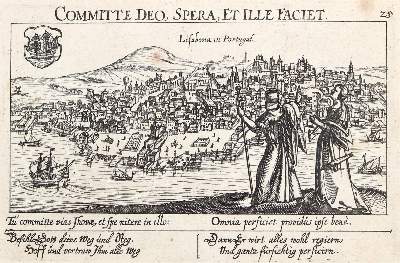 COMMITTE DEO, SPERA, ET ILLE FACIET.
25
Lisabona in Portugal.
Tu committe vias Jhovæ, et spe nitere in illo:
Omnia perficiet providis ipse bene.
Befihl Gott deine Weg und Steg.
Hoff und vertraw Ihm alle weg
Dann Er wirt alles wohl regiern
Und gantz fürsichtig perficirn.